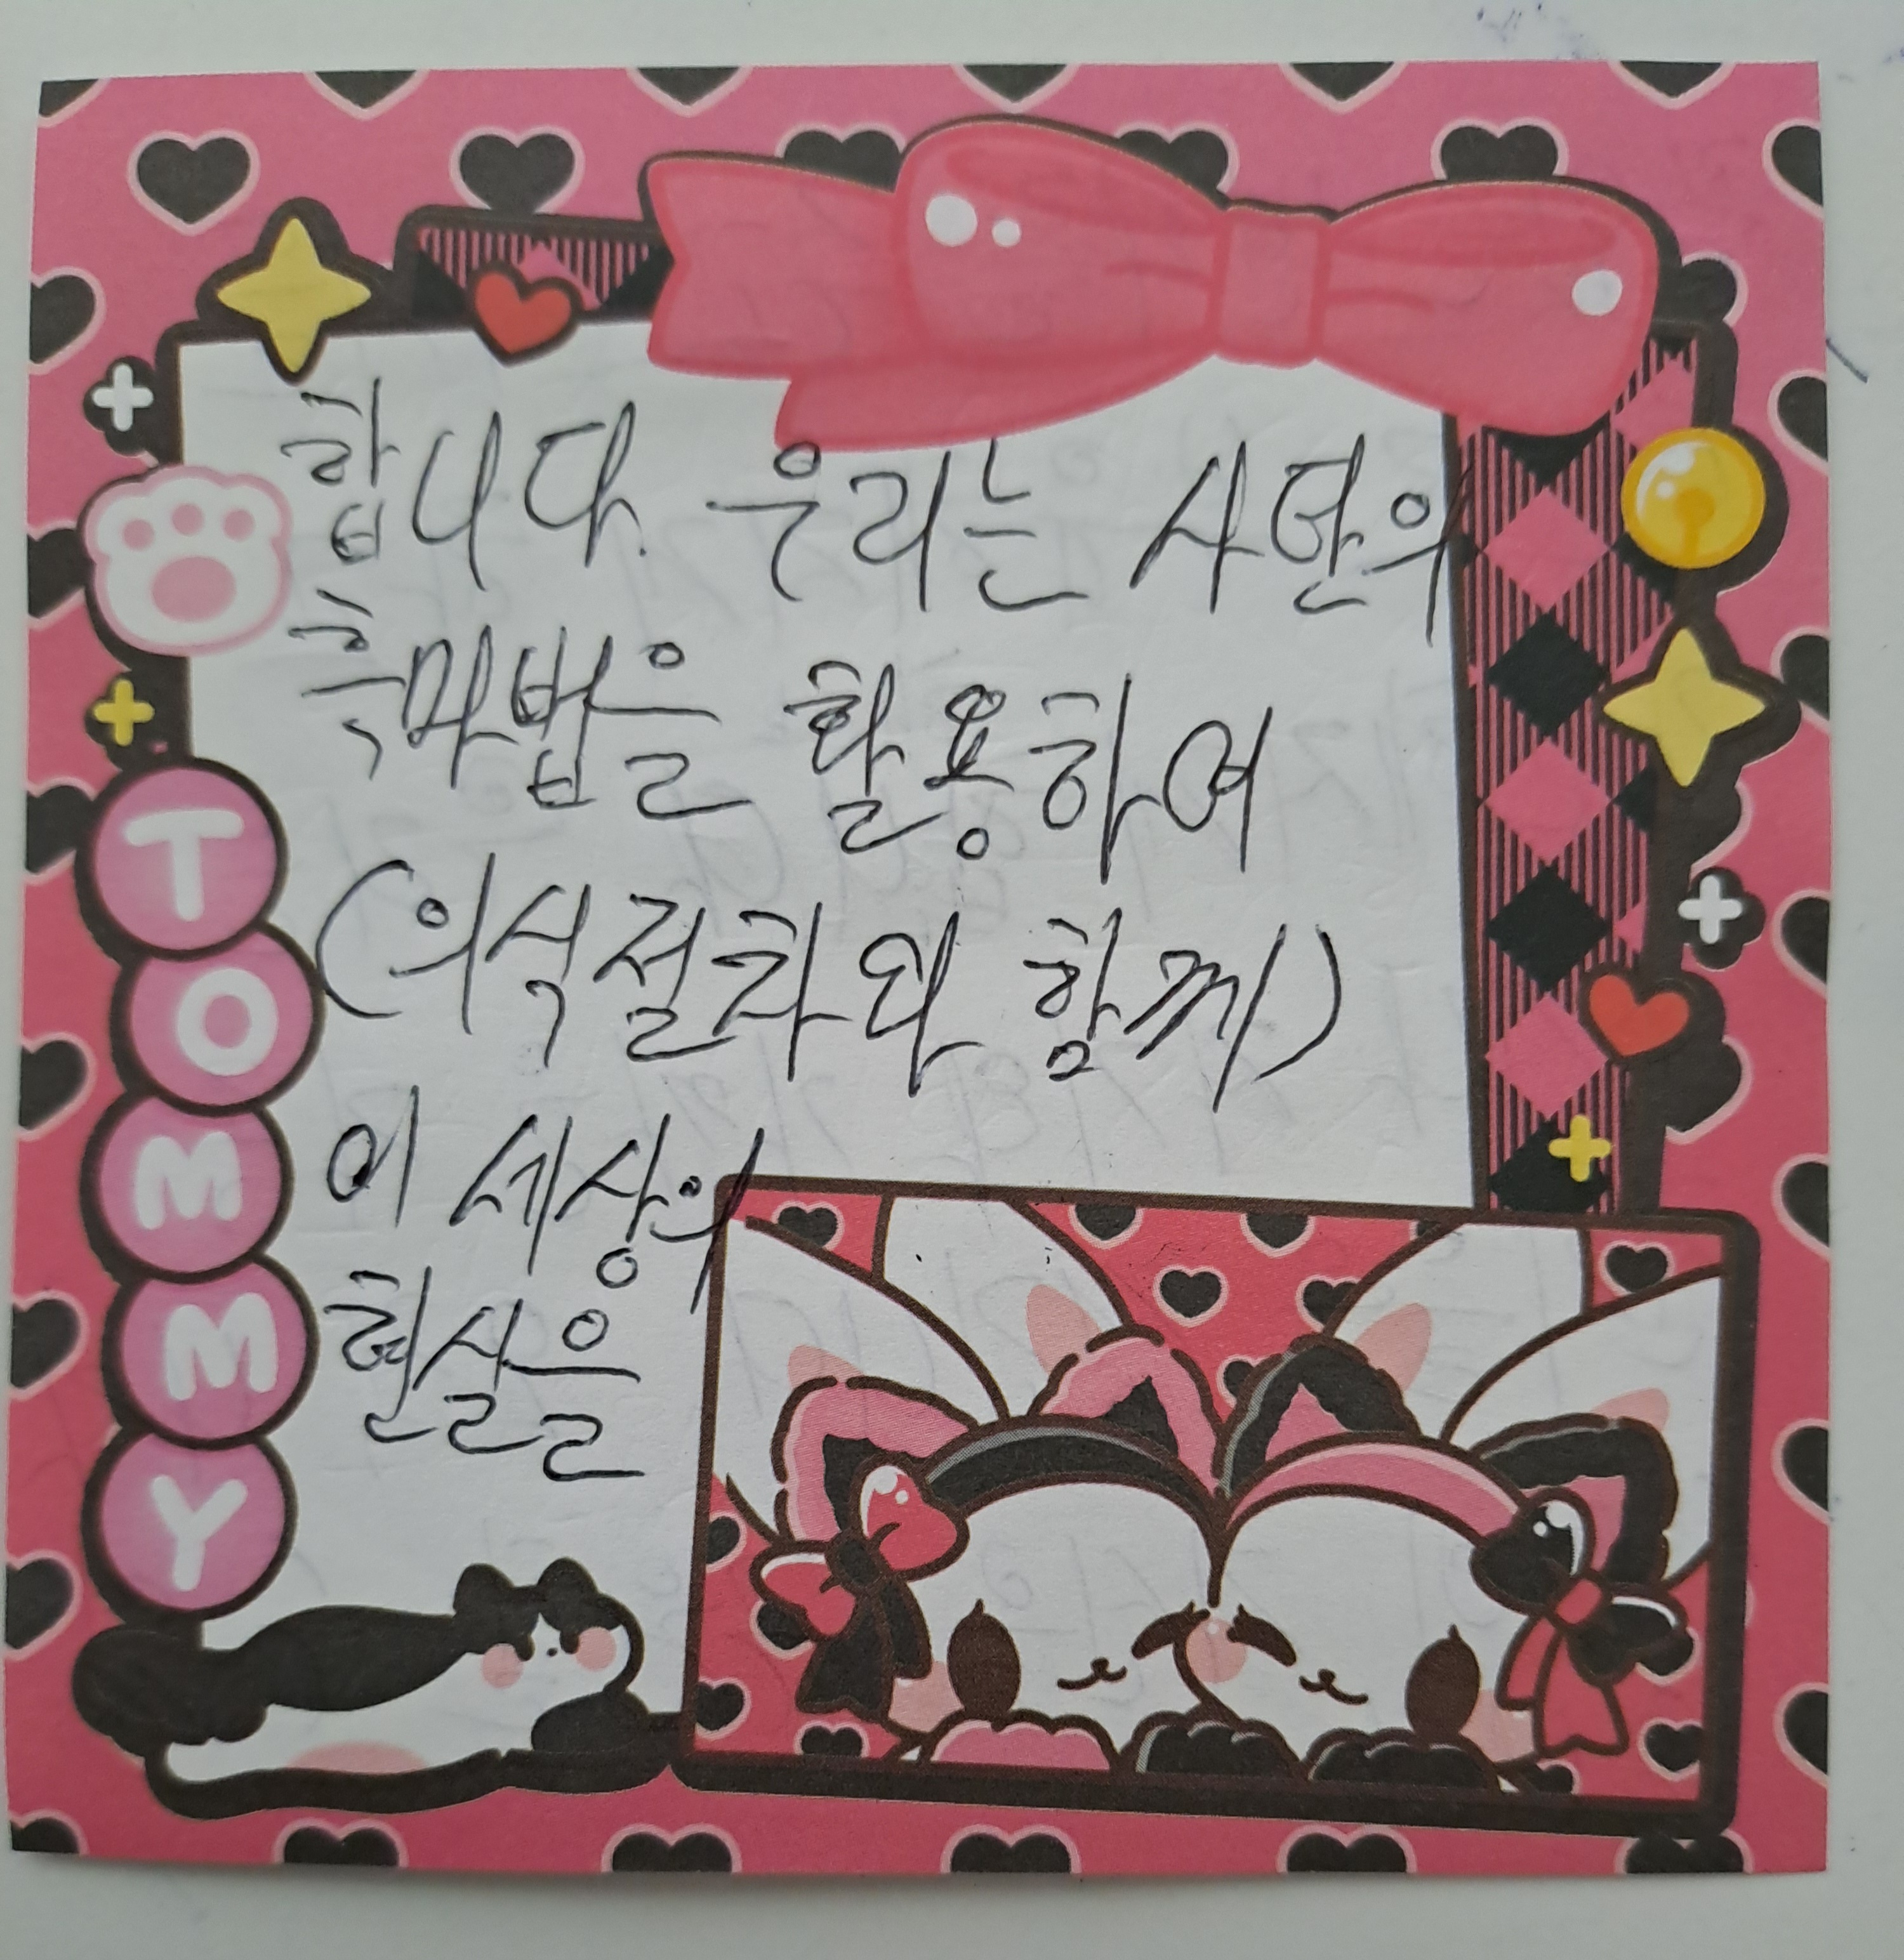 합니다. 우리는 사탄의
흑마법을 활용하여
(의식절차와 함께)
이 세상의
현실을
TOMMY